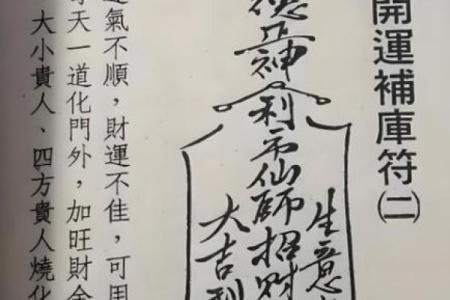 開運補庫符㈡
生意
德正神利市仙師招財
大吉利
運氣不順，財運不佳，可用
每天一道化門外，加旺財金
大小貴人、四方貴人燒化